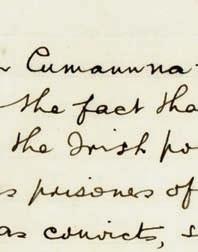 Cumann na
the fact tha
the Irish po
s prisoners of
as convicts, s